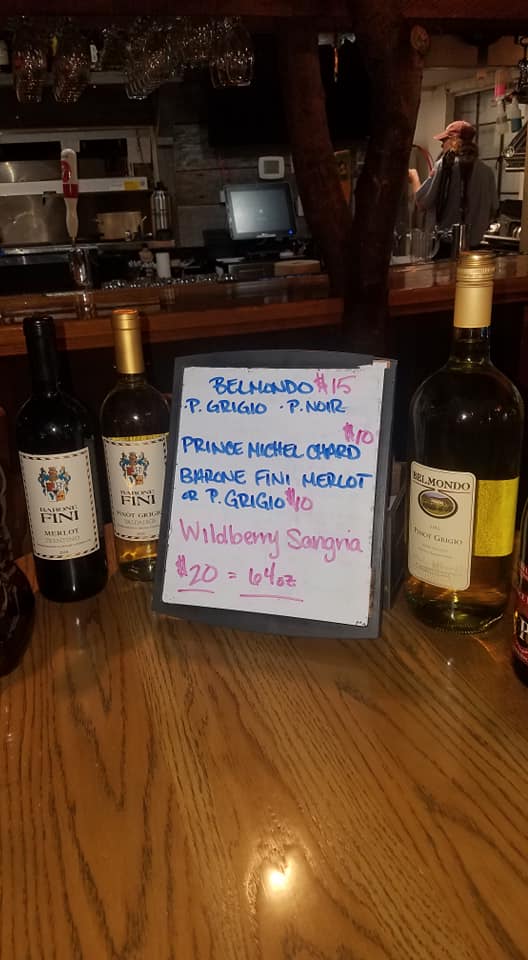 BELMONDO $15
·P. GRIGIO ·P. NOIR
$10
PRINCE MICHEL CHARD
BARONE FINI MERLOT
OR P. GRIGIO $10
Wildberry Sangria
$20 = 64oz
BARONE
FINI
MERLOT
TRENTINO
BARONE
FINI
PINOT GRIGIO
VALDADIGE
BELMONDO
PINOT GRIGIO